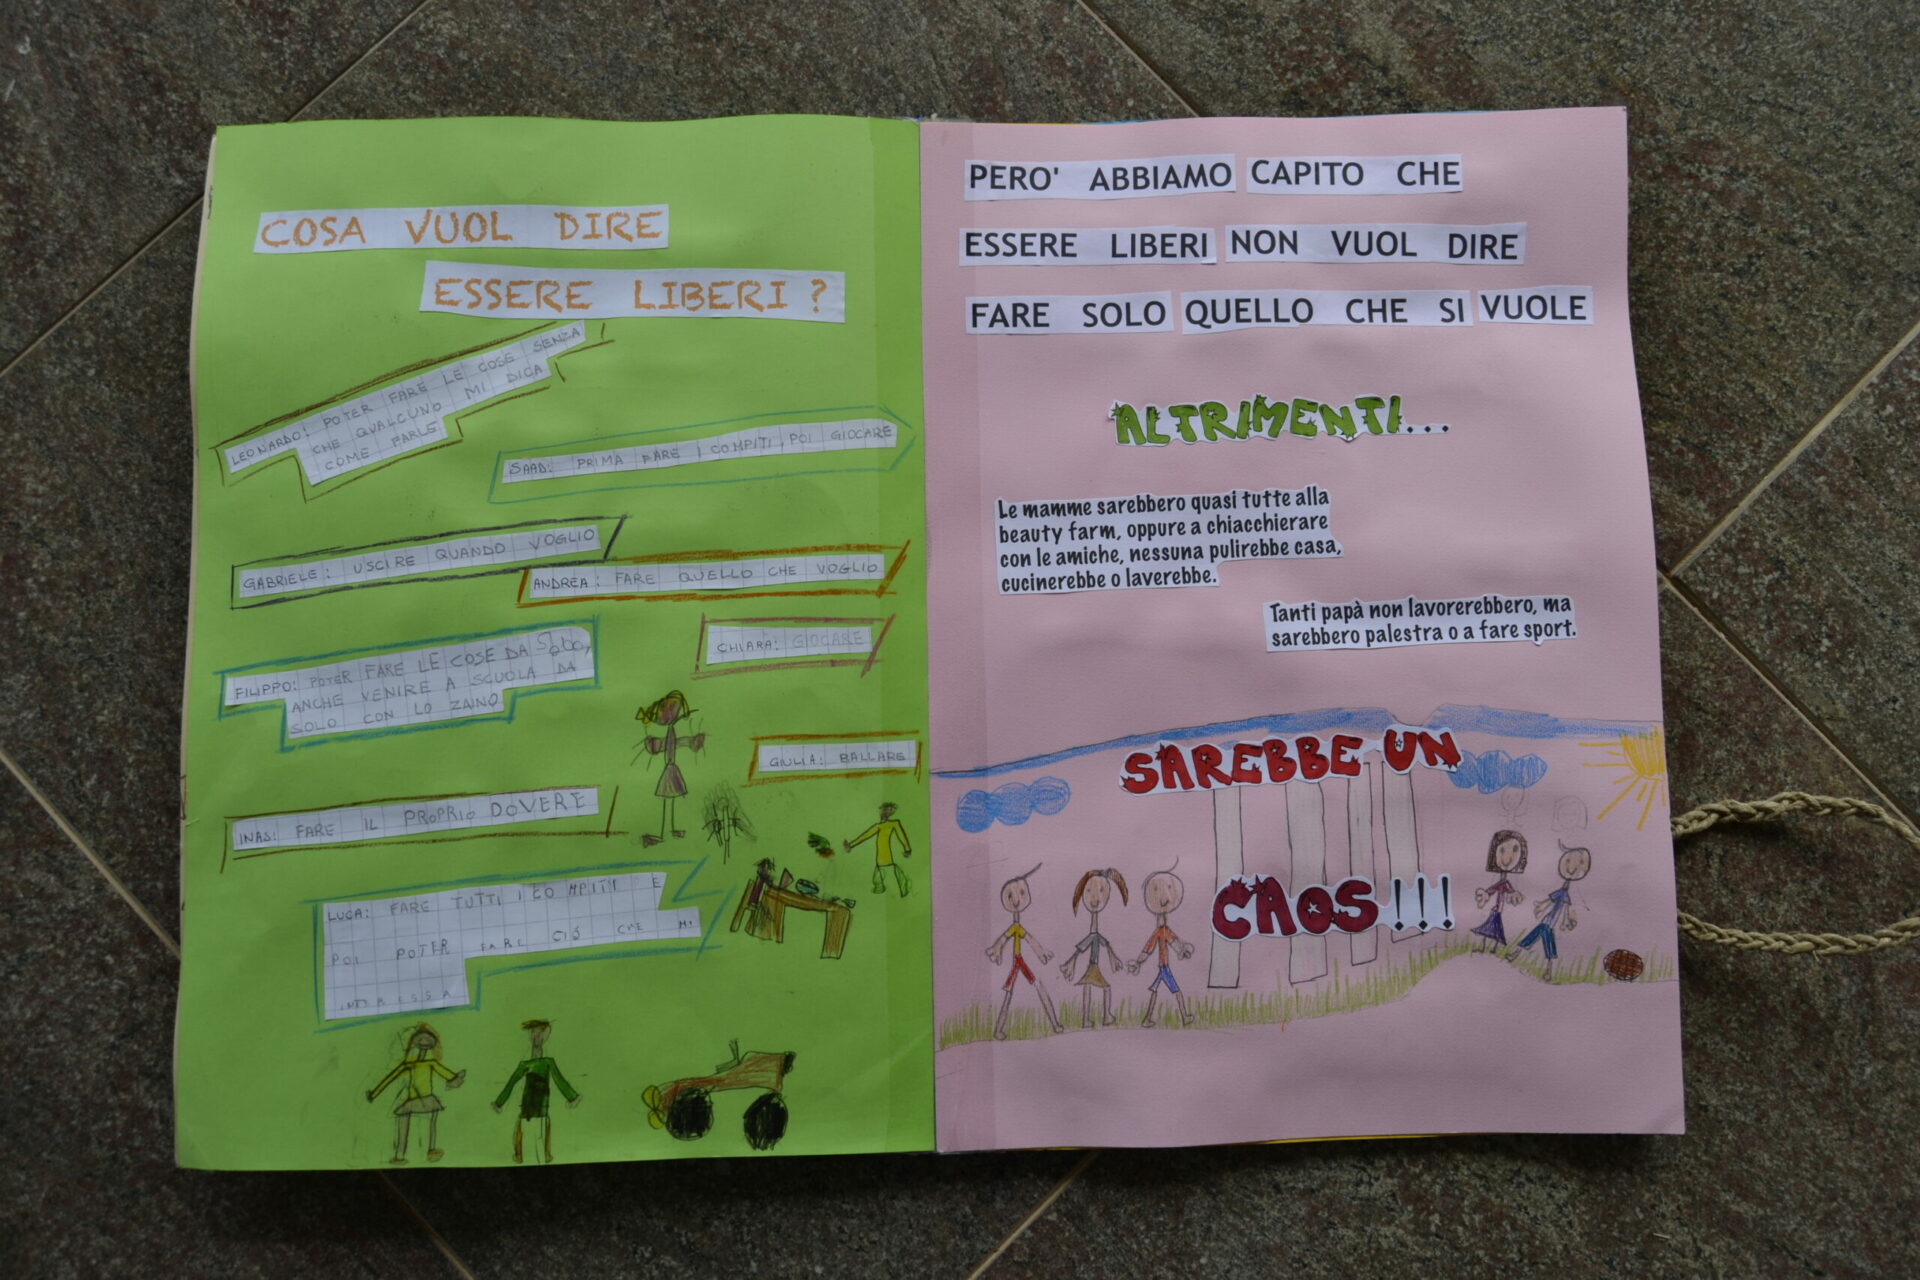 COSA VUOL DIRE
ESSERE LIBERI ?
LEONARDO: POTER FARE LE COSE SENZA
CHE QUALCUNO MI DICA
COME FARLE
SAAD: PRIMA FARE I COMPITI, POI GIOCARE
GABRIELE: USCIRE QUANDO VOGLIO
ANDREA: FARE QUELLO CHE VOGLIO
CHIARA: GIOCARE
FILIPPO: POTER FARE LE COSE DA SOLO,
ANCHE VENIRE A SCUOLA DA
SOLO CON LO ZAINO
GIULIA: BALLARE
INAS: FARE IL PROPRIO DOVERE
LUCA: FARE TUTTI I COMPITI E
POI POTER FARE CIÒ CHE MI
INTERESSA
PERO' ABBIAMO CAPITO CHE
ESSERE LIBERI NON VUOL DIRE
FARE SOLO QUELLO CHE SI VUOLE
ALTRIMENTI...
Le mamme sarebbero quasi tutte alla
beauty farm, oppure a chiacchierare
con le amiche, nessuna pulirebbe casa,
cucinerebbe o laverebbe.
Tanti papà non lavorerebbero, ma
sarebbero palestra o a fare sport.
SAREBBE UN
CAOS!!!